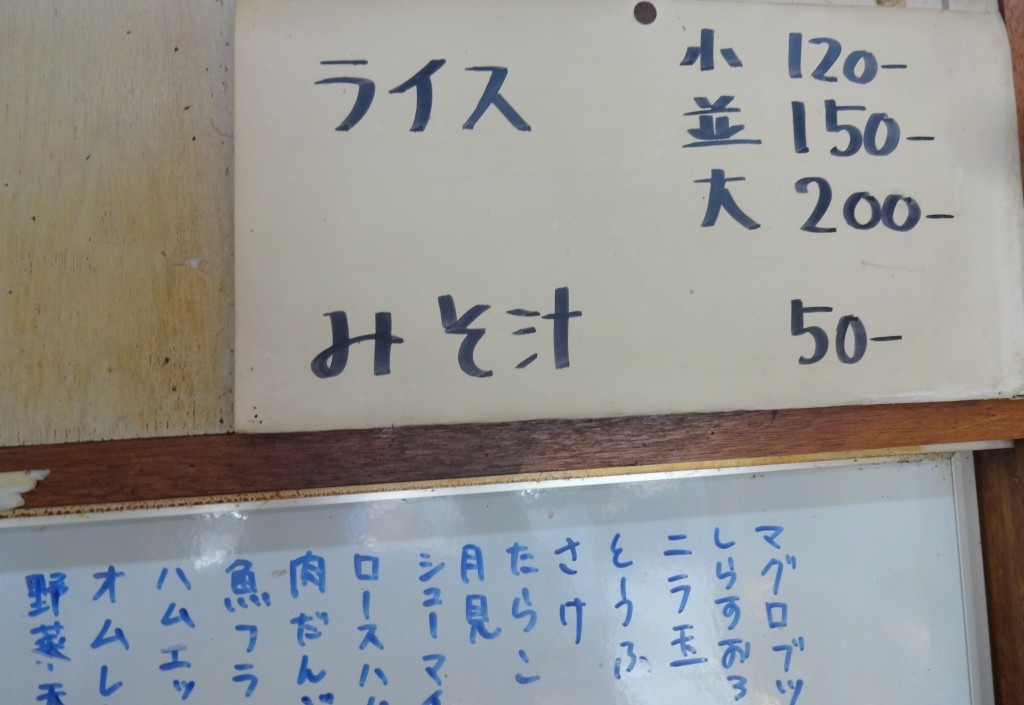 ライス 小 120-
並 150-
大 200-
みそ汁 50-
マグロブツ
しらすおろ
ニラ玉
とうふ
さけ
たらこ
月見
シューマイ
ロースハ
肉だん
魚フラ
ハムエッ
オムレ
野菜天